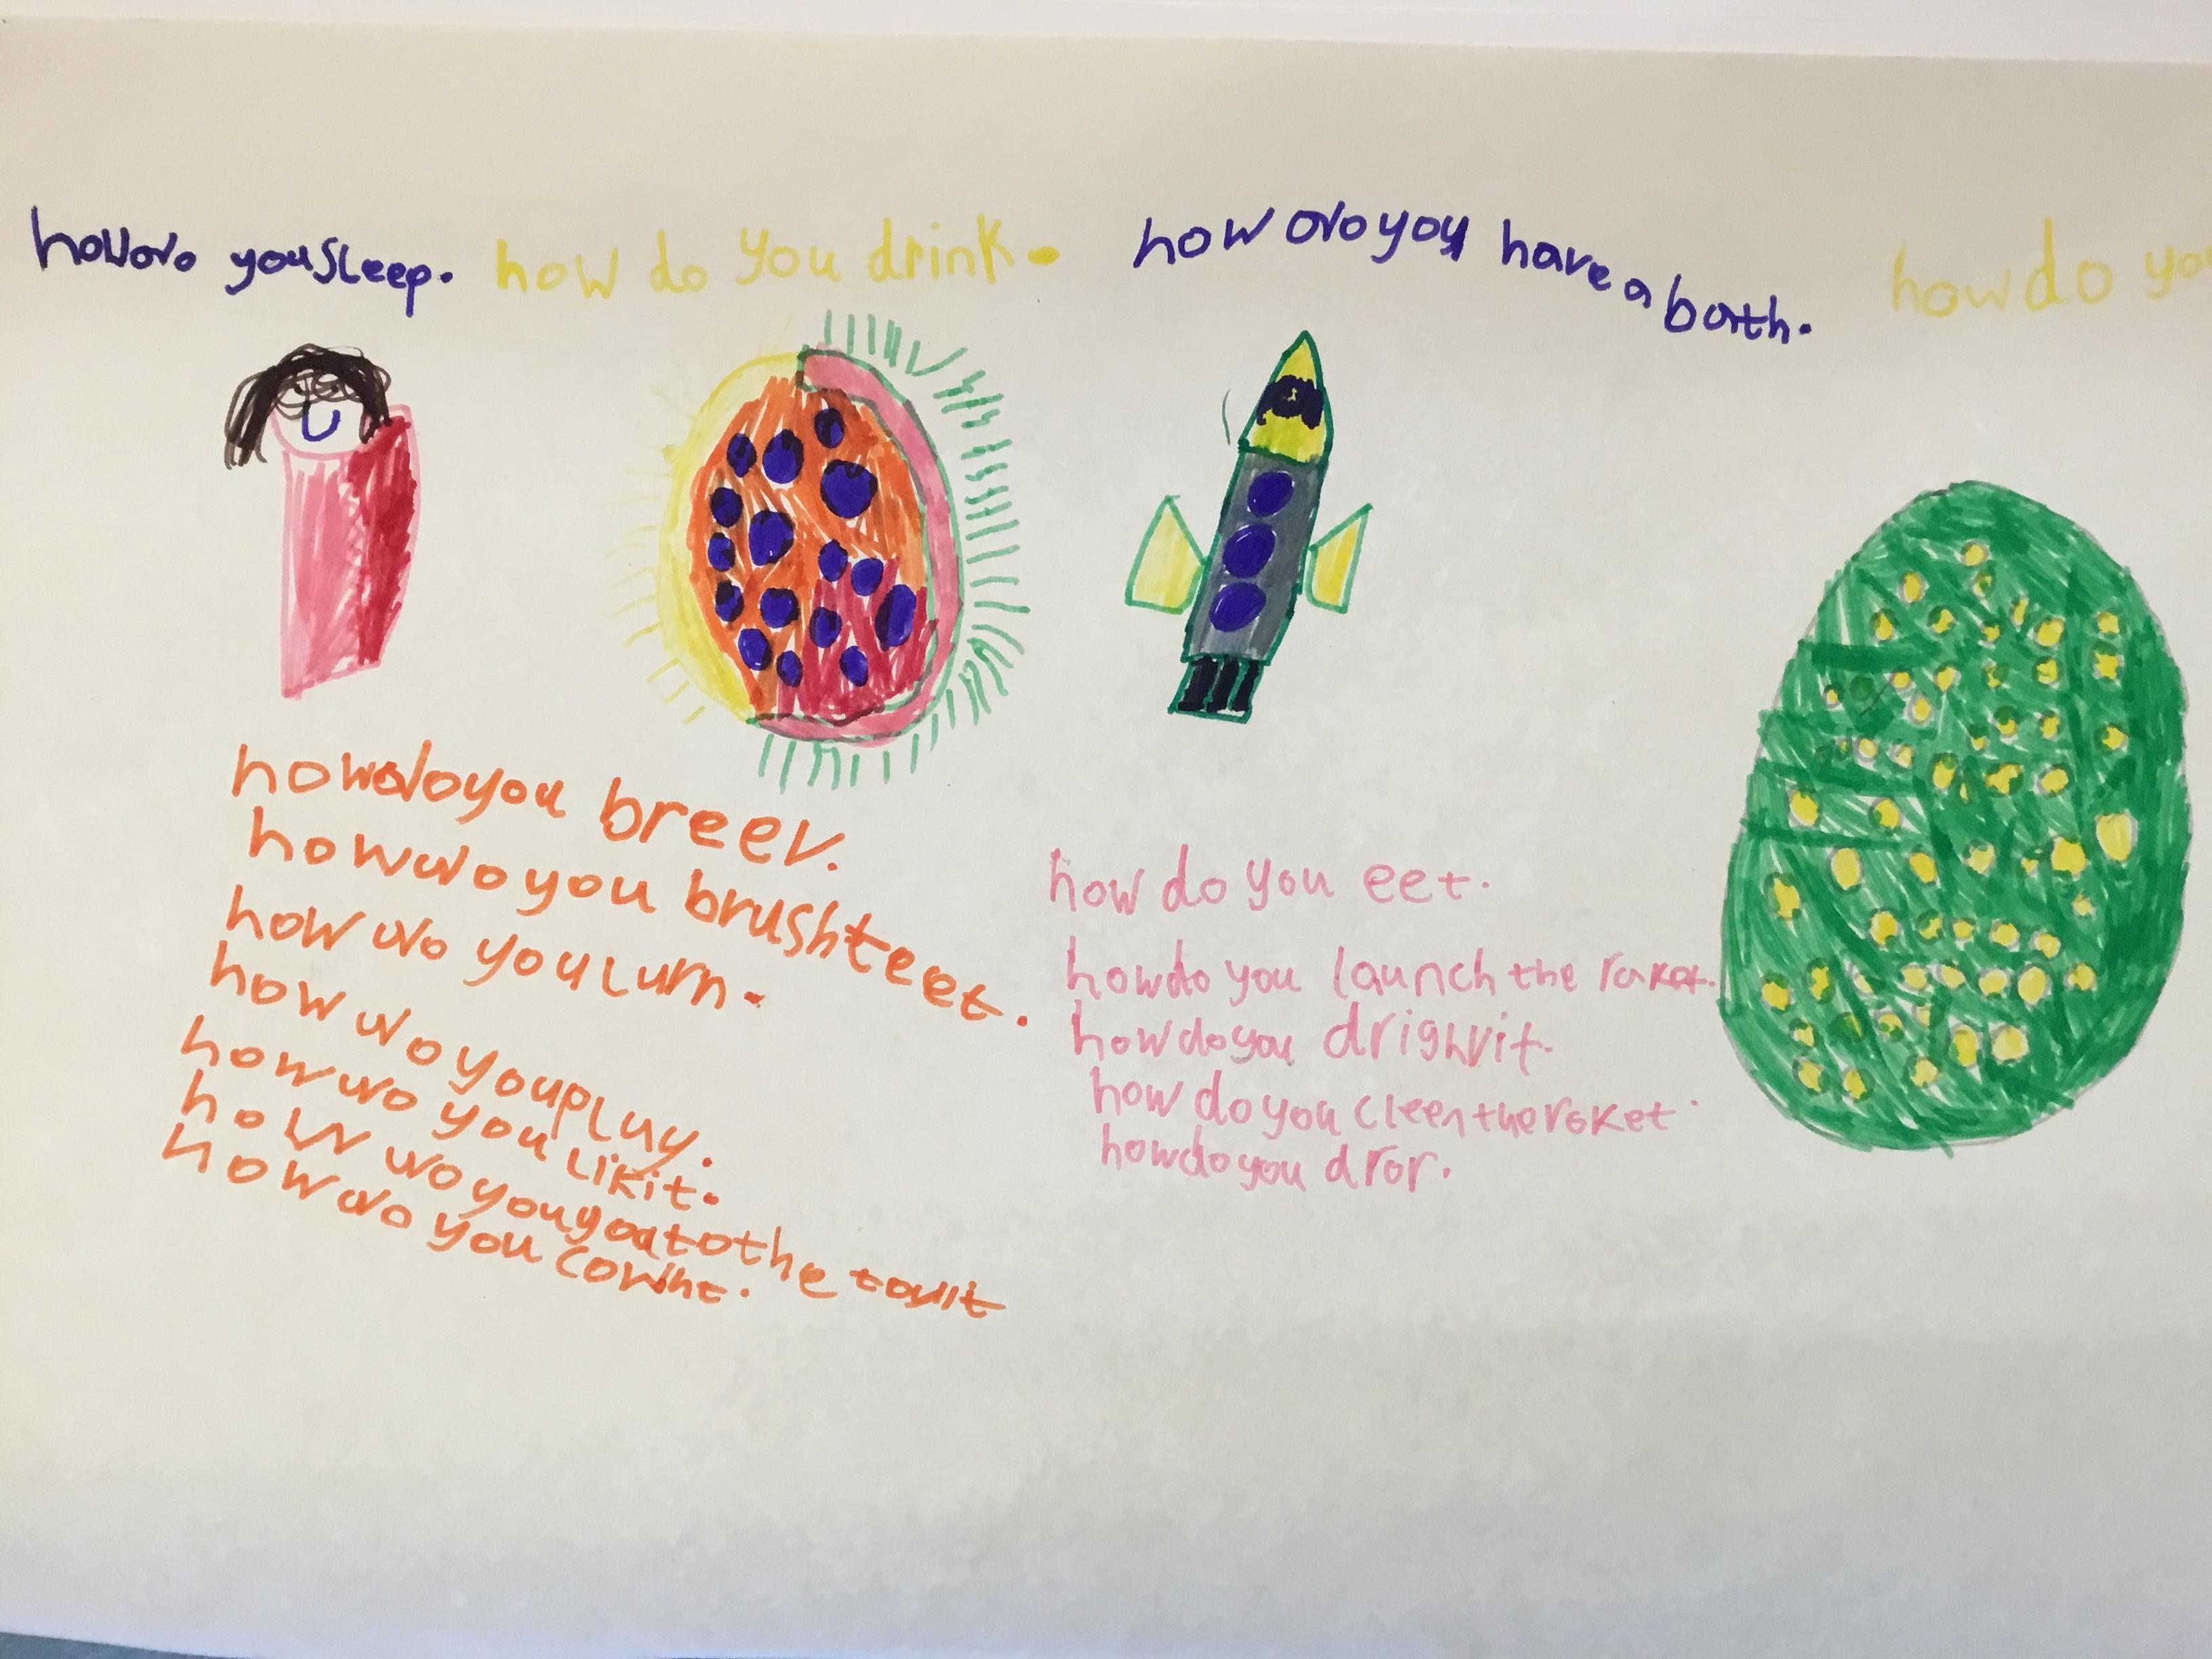 how do you sleep.
how do you drink.
how do you have a bath.
how do you
how do you breev.
how do you brush teet.
how do you lurn.
how do you play.
how do you lik it.
how do you go to the
how do you cownt.
how do you eet.
how do you launch the roket.
how do you drighv it.
how do you cleen the roket.
how do you dror.